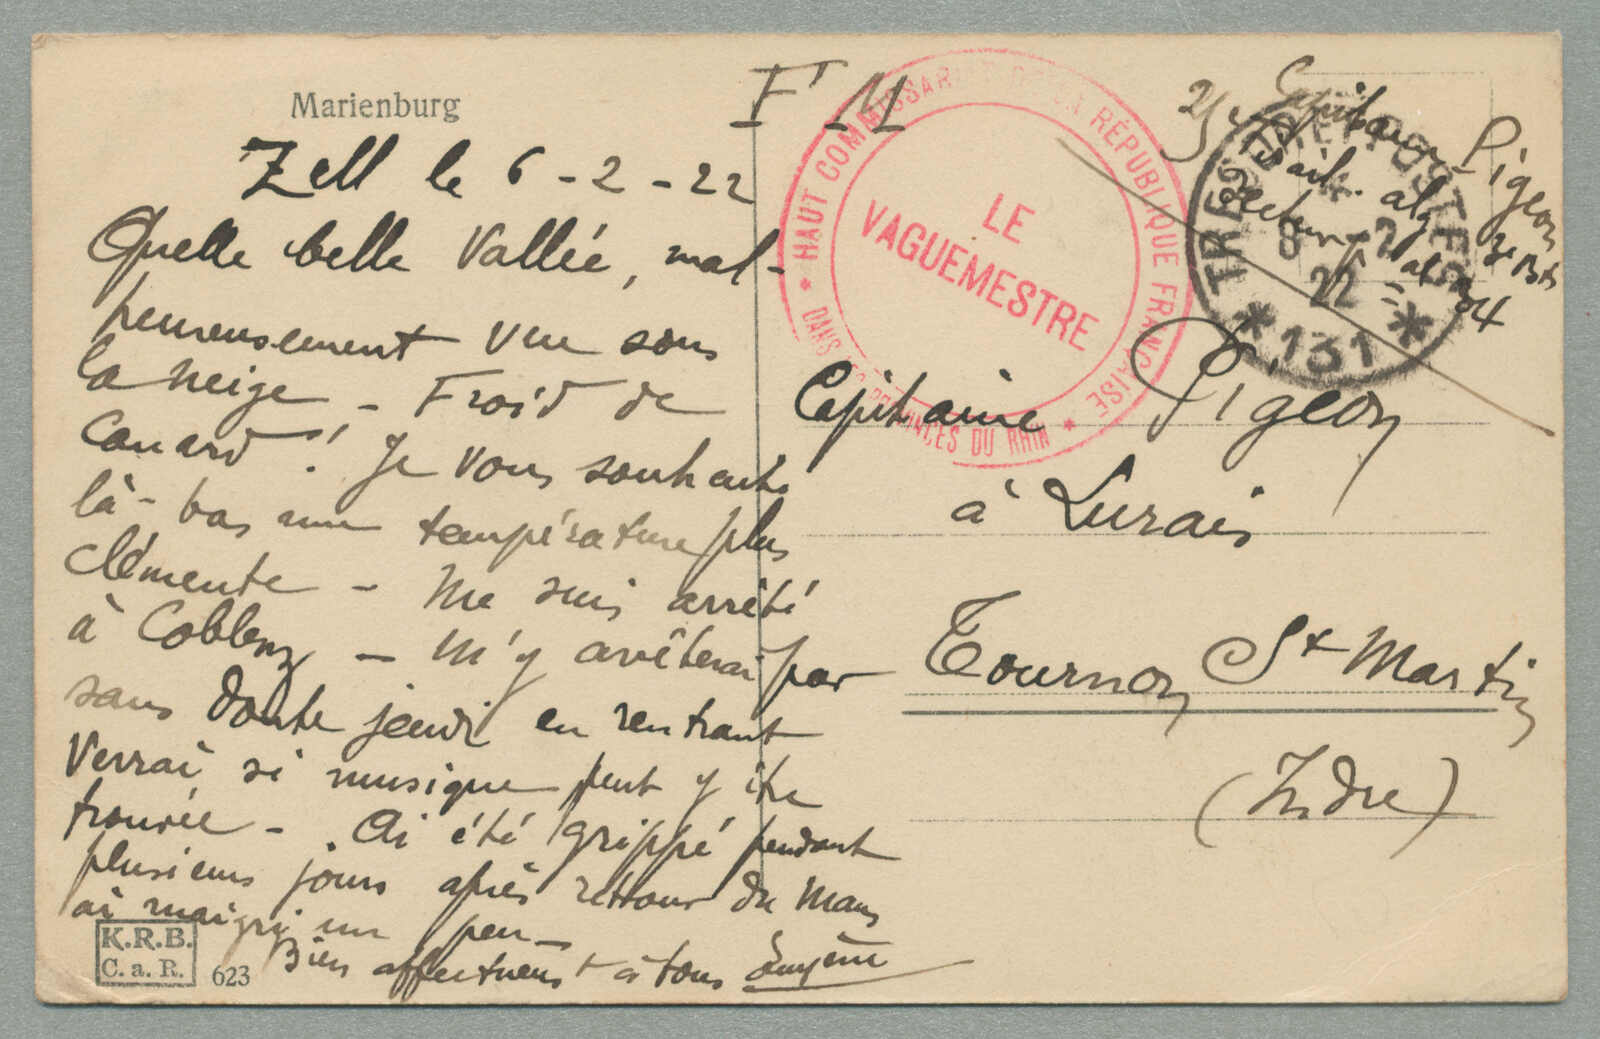 Marienburg
Zell le 6-2-22
Quelle belle Vallée, mal-
heureusement vue sous
la neige - Froid de
canard! Je vous souhaite
là-bas une température plus
clémente - Me suis arrêté
à Coblenz - M'y arrêterai par
sans doute jeudi en rentrant
Verrai si musique peut y être
trouvée - . Ai été grippé pendant
plusieurs jours après retour du Mans
ai maigri un peu -
Bien affectueust à tous Eugène
K.R.B.
C. a. R.
623
F M
* HAUT COMMISSARIAT DE LA RÉPUBLIQUE FRANÇAISE *
DANS LES PROVINCES DU RHIN
LE
VAGUEMESTRE
TRESOR ET POSTES
8 - 2
22
* 131 *
Capitaine Pigeon
Secteur postal 304
Capitaine Pigeon
à Lurais
Tournon St Martin
(Indre)